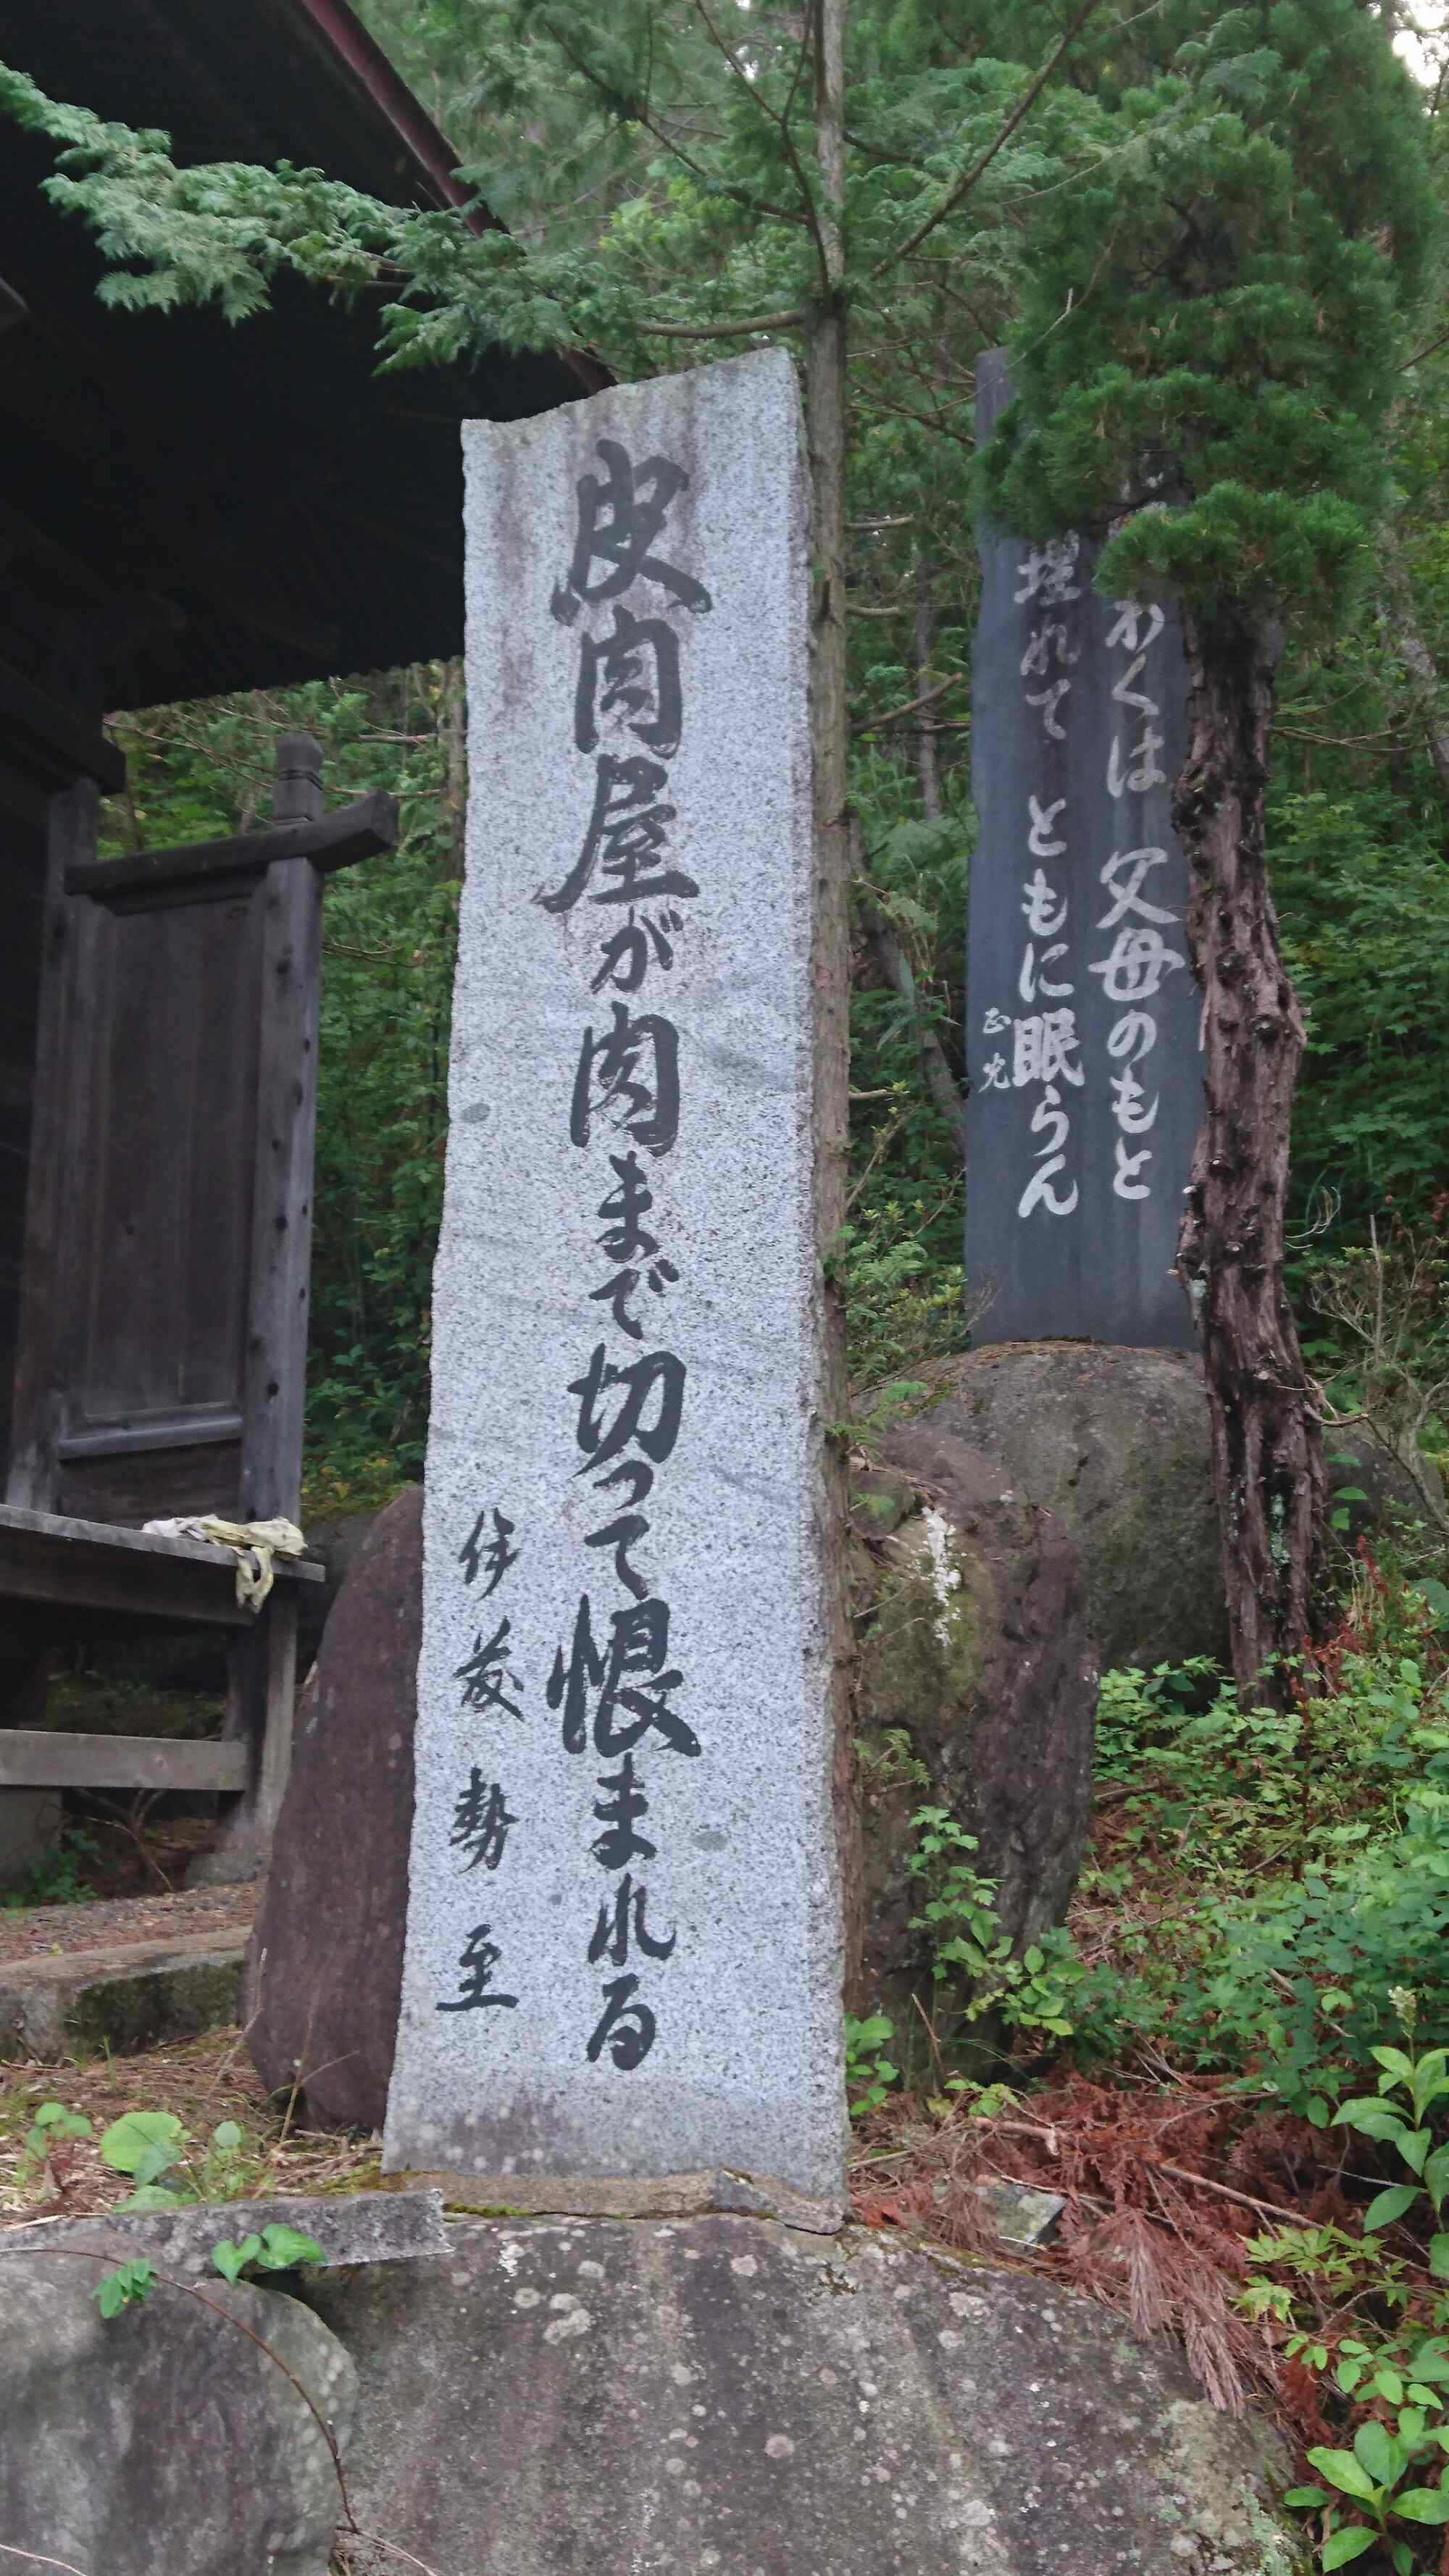 皮肉屋が肉まで切って恨まれる
伊茂勢至
かくは 父母のもと
埋れて ともに眠らん
正光